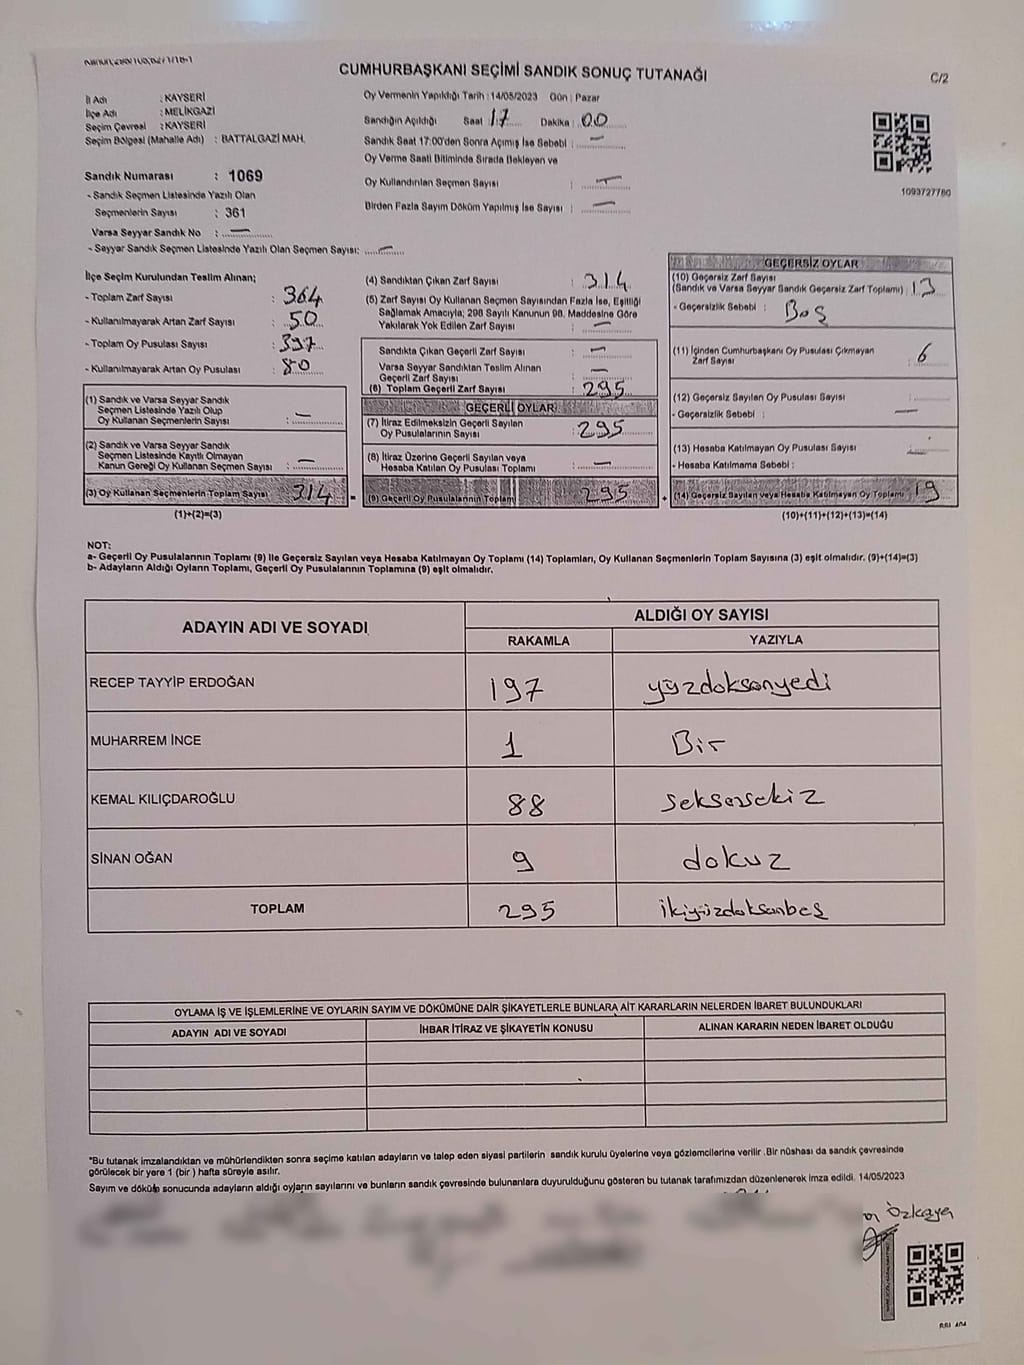 CUMHURBAŞKANI SEÇİMİ SANDIK SONUÇ TUTANAĞI
C/2
İl Adı : KAYSERİ
İlçe Adı : MELİKGAZİ
Seçim Çevresi : KAYSERİ
Seçim Bölgesi (Mahalle Adı) : BATTALGAZİ MAH.
Sandık Numarası : 1069
- Sandık Seçmen Listesinde Yazılı Olan
Seçmenlerin Sayısı : 361
Varsa Seyyar Sandık No : —
- Seyyar Sandık Seçmen Listesinde Yazılı Olan Seçmen Sayısı: —
Oy Vermenin Yapıldığı Tarih : 14/05/2023 Gün : Pazar
Sandığın Açıldığı Saat : 17 Dakika : 00
Sandık Saat 17:00'den Sonra Açımış İse Sebebi : —
Oy Verme Saati Bitiminde Sırada Bekleyen ve
Oy Kullandırılan Seçmen Sayısı : —
Birden Fazla Sayım Döküm Yapılmış İse Sayısı : —
1093727780
İlçe Seçim Kurulundan Teslim Alınan;
- Toplam Zarf Sayısı : 364
- Kullanılmayarak Artan Zarf Sayısı : 50
- Toplam Oy Pusulası Sayısı : 397
- Kullanılmayarak Artan Oy Pusulası : 80
(1) Sandık ve Varsa Seyyar Sandık
Seçmen Listesinde Yazılı Olup
Oy Kullanan Seçmenlerin Sayısı : —
(2) Sandık ve Varsa Seyyar Sandık
Seçmen Listesinde Kayıtlı Olmayan
Kanun Gereği Oy Kullanan Seçmen Sayısı : —
(3) Oy Kullanan Seçmenlerin Toplam Sayısı 314 =
(1)+(2)=(3)
(4) Sandıktan Çıkan Zarf Sayısı : 314
(5) Zarf Sayısı Oy Kullanan Seçmen Sayısından Fazla İse, Eşitliği
Sağlamak Amacıyla; 298 Sayılı Kanunun 98. Maddesine Göre
Yakılarak Yok Edilen Zarf Sayısı : —
Sandıkta Çıkan Geçerli Zarf Sayısı : —
Varsa Seyyar Sandıktan Teslim Alınan
Geçerli Zarf Sayısı : —
(6) Toplam Geçerli Zarf Sayısı : 295
GEÇERLİ OYLAR
(7) İtiraz Edilmeksizin Geçerli Sayılan
Oy Pusulalarının Sayısı : 295
(8) İtiraz Üzerine Geçerli Sayılan veya
Hesaba Katılan Oy Pusulası Toplamı : —
(9) Geçerli Oy Pusulalarının Toplamı 295 +
GEÇERSİZ OYLAR
(10) Geçersiz Zarf Sayısı
(Sandık ve Varsa Seyyar Sandık Geçersiz Zarf Toplamı) : 13
- Geçersizlik Sebebi : Boş
(11) İçinden Cumhurbaşkanı Oy Pusulası Çıkmayan
Zarf Sayısı : 6
(12) Geçersiz Sayılan Oy Pusulası Sayısı :
- Geçersizlik Sebebi : —
(13) Hesaba Katılmayan Oy Pusulası Sayısı : —
- Hesaba Katılmama Sebebi :
(14) Geçersiz Sayılan veya Hesaba Katılmayan Oy Toplamı 19
(10)+(11)+(12)+(13)=(14)
NOT:
a- Geçerli Oy Pusulalarının Toplamı (9) ile Geçersiz Sayılan veya Hesaba Katılmayan Oy Toplamı (14) Toplamları, Oy Kullanan Seçmenlerin Toplam Sayısına (3) eşit olmalıdır. (9)+(14)=(3)
b- Adayların Aldığı Oyların Toplamı, Geçerli Oy Pusulalarının Toplamına (9) eşit olmalıdır.
ADAYIN ADI VE SOYADI
ALDIĞI OY SAYISI
RAKAMLA YAZIYLA
RECEP TAYYİP ERDOĞAN 197 yüzdoksanyedi
MUHARREM İNCE 1 Bir
KEMAL KILIÇDAROĞLU 88 seksensekiz
SİNAN OĞAN 9 dokuz
TOPLAM 295 ikiyüzdoksanbeş
OYLAMA İŞ VE İŞLEMLERİNE VE OYLARIN SAYIM VE DÖKÜMÜNE DAİR ŞİKAYETLERLE BUNLARA AİT KARARLARIN NELERDEN İBARET BULUNDUKLARI
ADAYIN ADI VE SOYADI İHBAR İTİRAZ VE ŞİKAYETİN KONUSU ALINAN KARARIN NEDEN İBARET OLDUĞU
*Bu tutanak imzalandıktan ve mühürlendikten sonra seçime katılan adayların ve talep eden siyasi partilerin sandık kurulu üyelerine veya gözlemcilerine verilir .Bir nüshası da sandık çevresinde
görülecek bir yere 1 (bir ) hafta süreyle asılır.
Sayım ve döküm sonucunda adayların aldığı oyların sayılarını ve bunların sandık çevresinde bulunanlara duyurulduğunu gösteren bu tutanak tarafımızdan düzenlenerek imza edildi. 14/05/2023
Özkaya